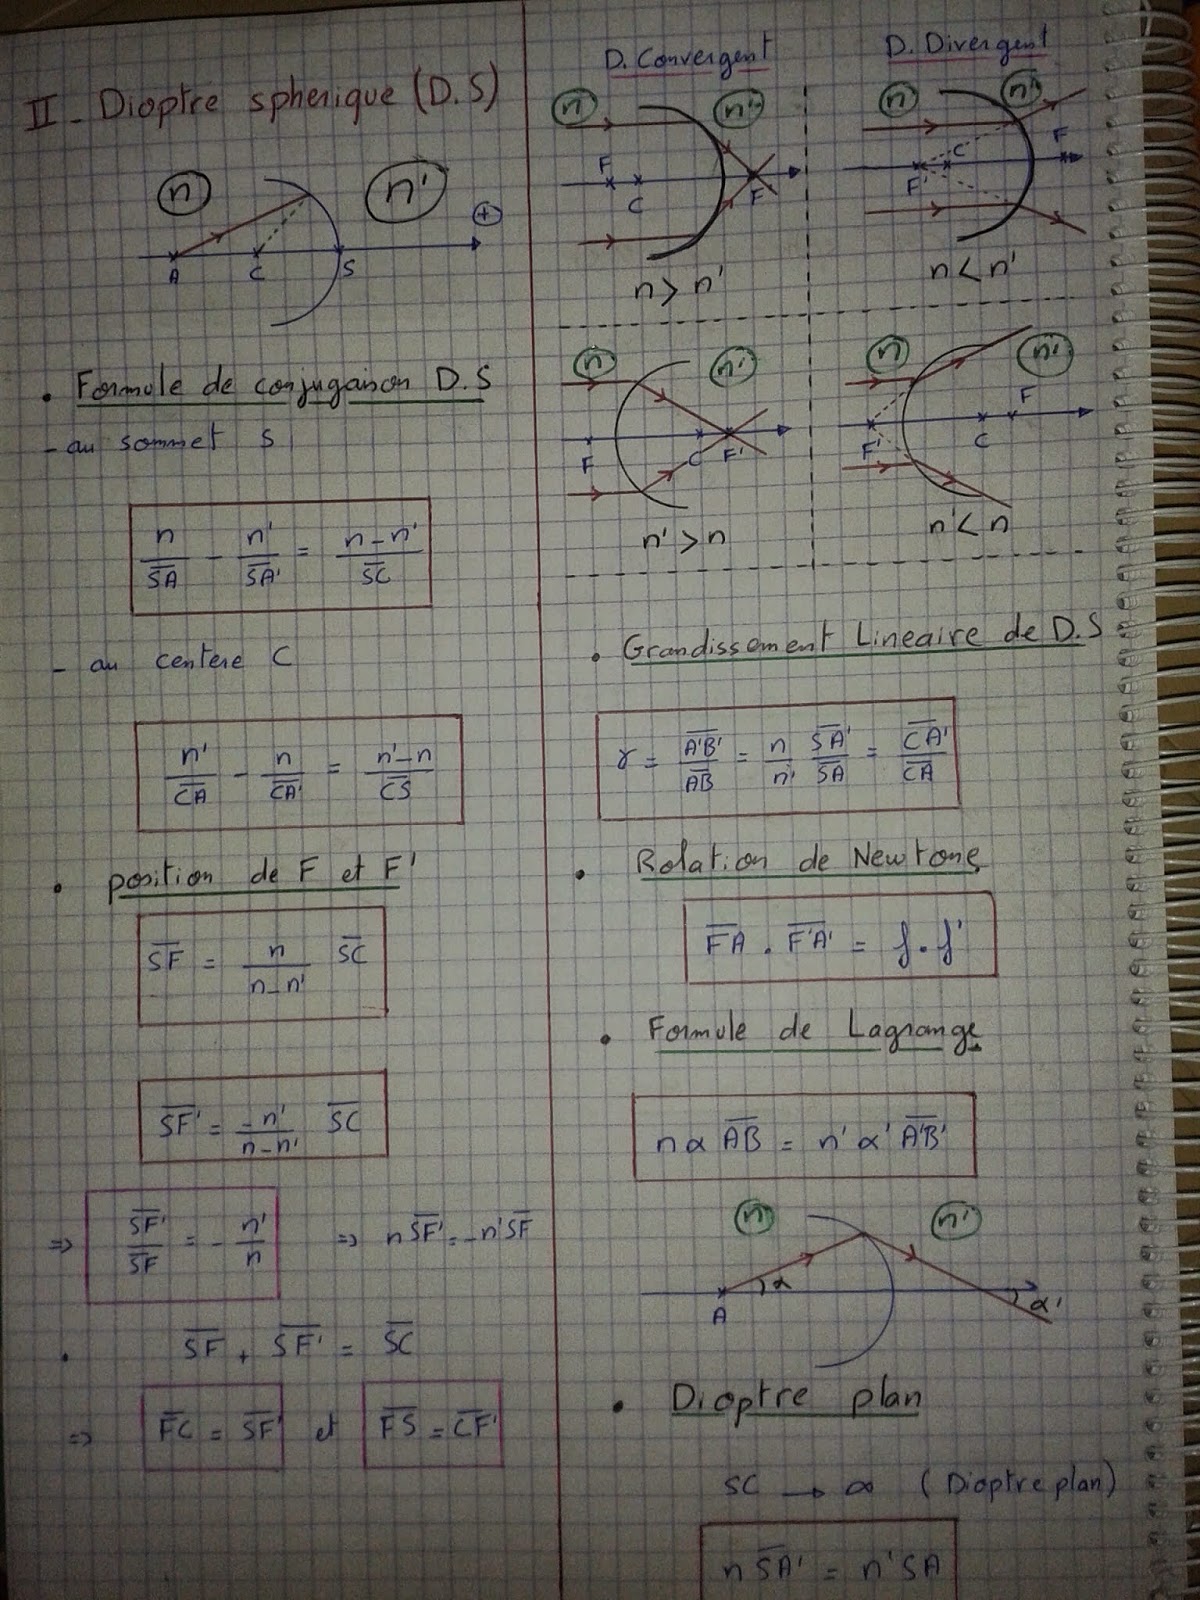 II_ Dioptre spherique (D.S)
n n'
+
A C S
. Formule de conjugaison D.S
- au sommet S
n/SA - n'/SA' = n-n'/SC
- au centere C
n'/CA - n/CA' = n'-n/CS
. position de F et F'
SF = n/n-n' SC
SF' = -n'/n-n' SC
=> SF'/SF = - n'/n => nSF' = -n'SF
. SF + SF' = SC
=> FC = SF' et FS = CF'
D. Convergent D. Divergent
n n' n n'
F C F F' C F
n > n' n < n'
n n' n n'
F C F' F' C F
n' > n n' < n
. Grandissement Lineaire de D.S
γ = A'B'/AB = n/n' SA'/SA = CA'/CA
. Rolation de Newtone
FA . F'A' = f . f'
. Formule de Lagrange
n α AB = n' α' A'B'
n n'
A α α'
. Dioptre plan
SC → ∞ (Dioptre plan)
n SA' = n' SA